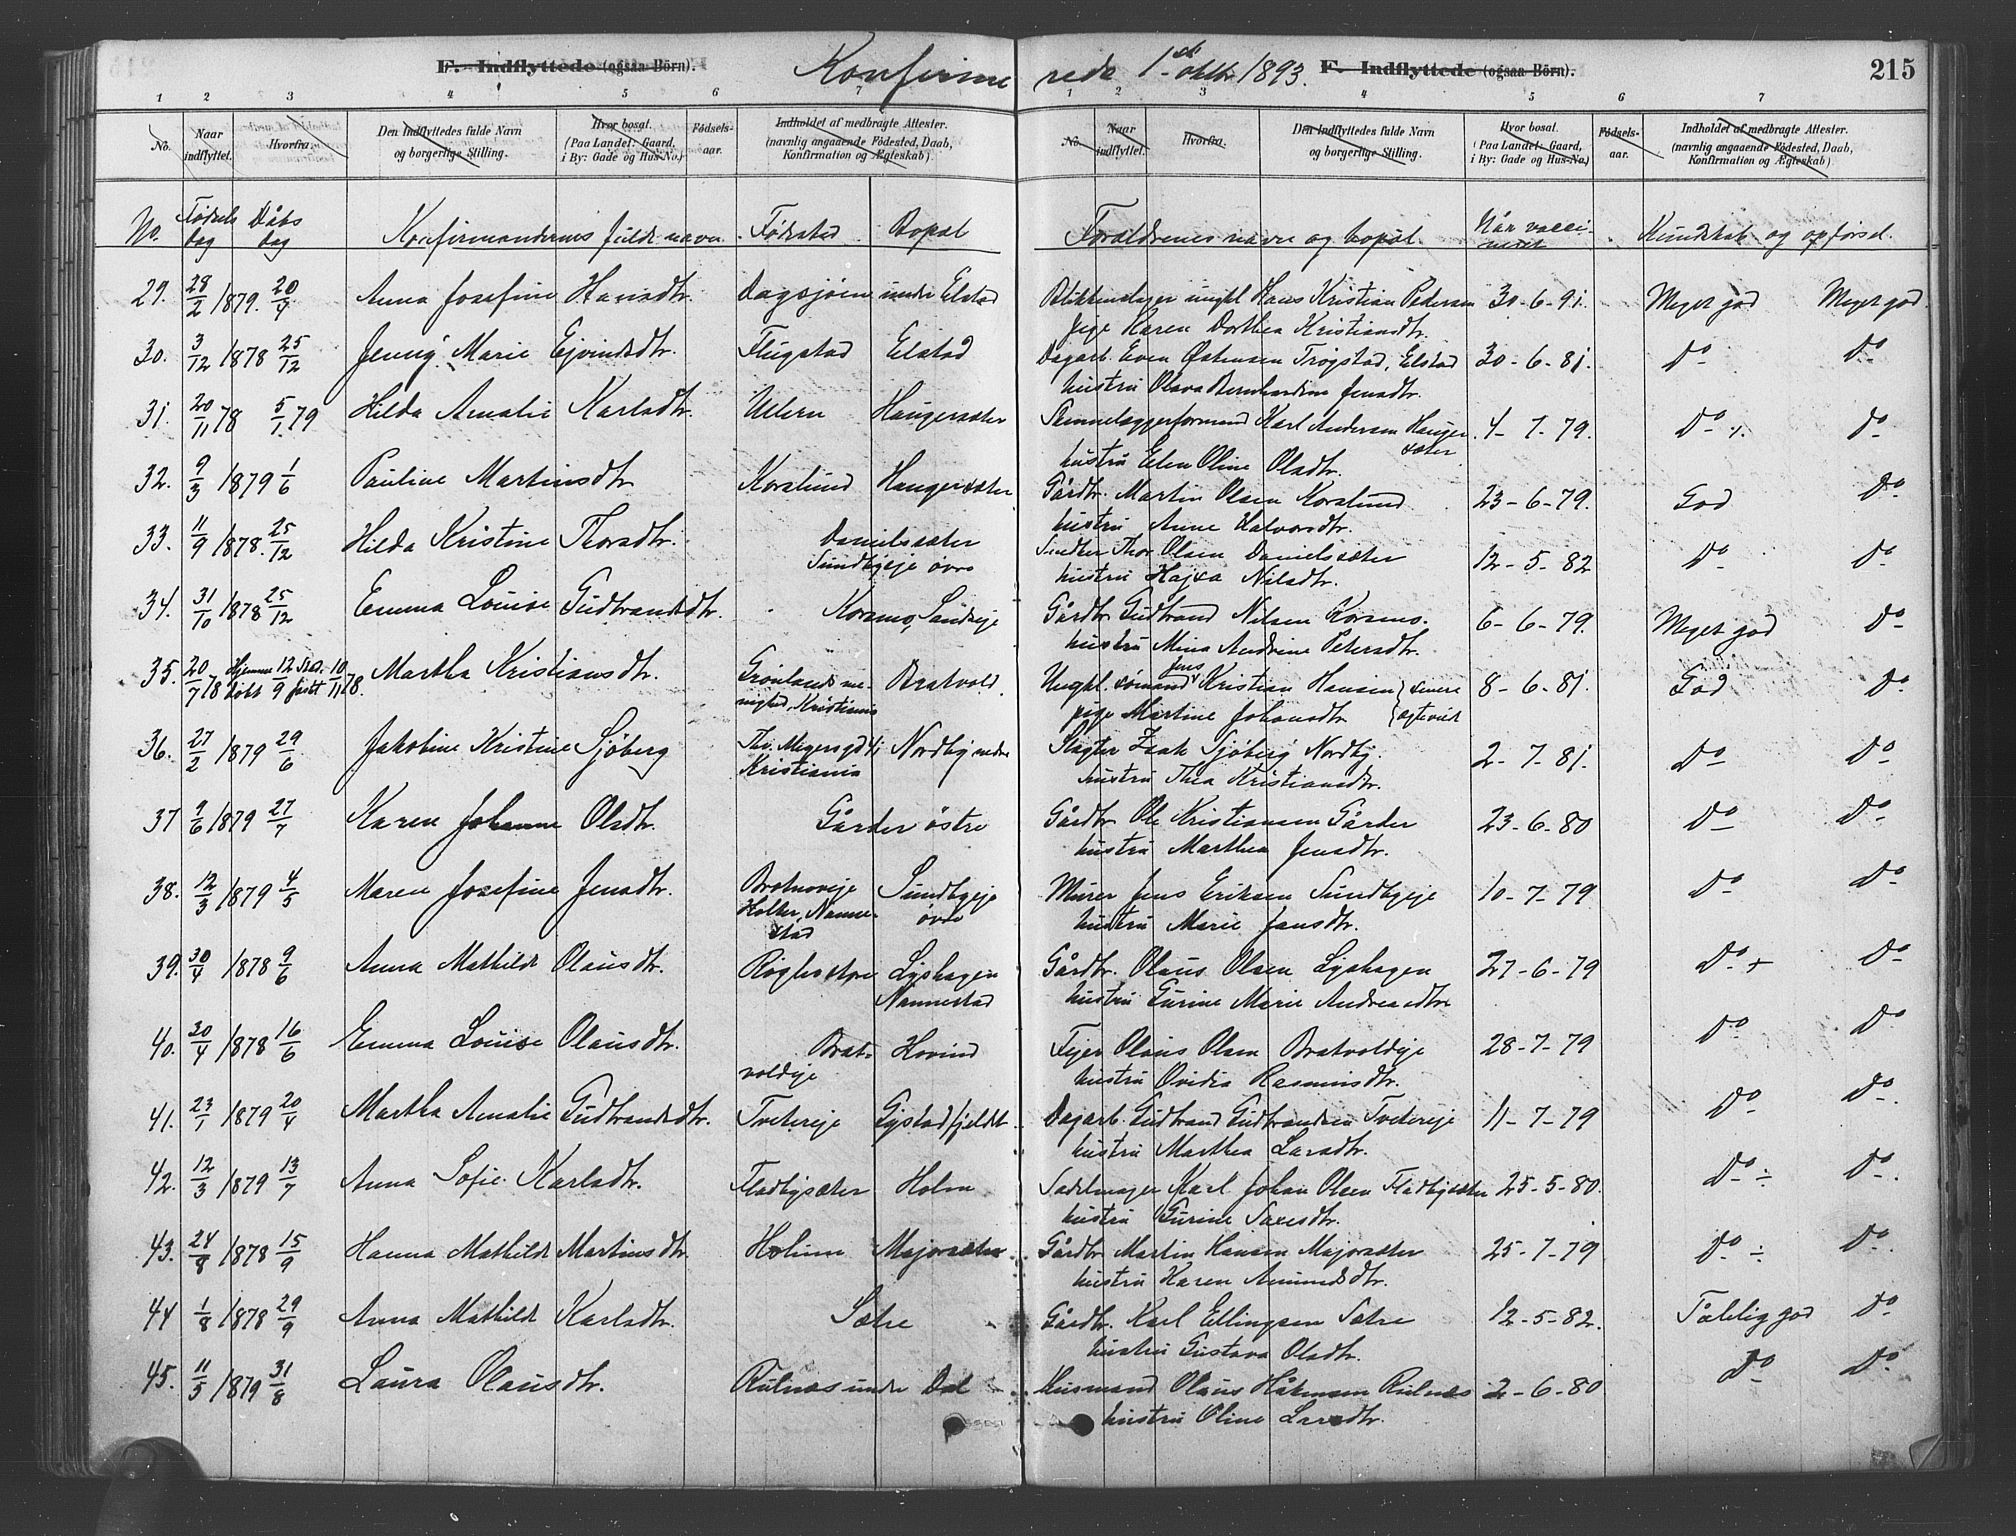 F. Indflyttede (ogsaa Börn). Konfirme rede 1ste oktbr. 1893. F. Indflyttede (ogsaa Börn). 215
1 2 3 4 5 6 7 1 2 3 4 5 6 7
No. Naar indflyttet. Hvorfra. Den Indflyttedes fulde Navn og borgerlige Stilling. Hvor bosat. (Paa Landet: Gaard, i By: Gade og Hus-No.) Fødsels-aar. Indholdet af medbragte Attester. (navnlig angaaende Födested, Daab, Konfirmation og Ægteskab)
No. Naar indflyttet. Hvorfra. Den Indflyttedes fulde Navn og borgerlige Stilling. Hvor bosat. (Paa Landet: Gaard, i By: Gade og Hus-No.) Fødsels-aar. Indholdet af medbragte Attester. (navnlig angaaende Födested, Daab, Konfirmation og Ægteskab)
No. Fødsels dag Dåbs dag Konfirmandernes fulde navn Fødested Bopæl Forældrenes navne og bopæl. Når vacci-neret Kundskab og opförsel.
29. 28/2 1879. 20/4 Anna Josefine Hansdtr. Dagsjöen under Elstad Blikkenslager ungkl Hans Kristian Pedersen 30-6-91. Meget god Meget god
pige Karen Dorthea Kristiansdtr.
30. 3/12 1878 25/12 Jenny Marie Ejvindsdtr. Flugstad Elstad Dagarb. Even Østensen Trøgstad, Elstad 30-6-81. Do Do
hustru Olava Bernhardine Jensdtr.
31. 20/11 78 5/1 79 Hilda Amalie Karlsdtr. Ullern Haugersæter Karl Andersen Hauger-sæter 4-7-79. Do Do
hustru Elen Oline Olsdtr.
32. 9/3 1879 1/6 Pauline Martinsdtr Korslund Haugersæter Gårdbr. Martin Olsen Korslund 23-6-79. God Do
hustru Anne Halvorsdtr.
33. 11/9 1878. 25/12 Hilda Kristine Thorsdtr. Danielssæter Sundbyeje övre Snedker Thor Olsen Danielssæter 12-5-82 Do Do
hustru Hajxa Nilsdtr.
34. 31/10 1878 25/12 Emma Louise Gudbrandsdtr. Korsmo, Sandseje Gårdbr Gudbrand Nilsen Korsmo. 6-6-79. Meget god Do
hustru Mina Andrine Petersdtr.
35. 20/7 78 Hjemmedöbt 12/9 Stad. fæstet 10/11 78. Martha Kristiansdtr. Grønlands menighed, Kristiania Bratvold Ungkl. sømand Jens Kristian Hansen senere 8-6-81. God Do
pige Martine Johansdtr ægteviet
36. 27/2 1879 29/6 Jakobine Kristine Sjöberg Th. Meyersgd 41 Kristiania Nordby nedre Slagter Isak Sjöberg Nordby. 2-7-81. Do Do
hustru Thea Kristiansdtr.
37 9/6 1879 27/7 Karen Johanne Olsdtr. Gårder östre Gårdbr Ole Kristiansen Gårder 23-6-80 Do Do
hustru Marthea Jensdtr.
38. 12/3 1879 4/5 Maren Josefine Jensdtr. Holter, Nannestad Sundbyeje övre Murer Jens Eriksen Sundbyeje 10-7-79 Do Do
hustru Marie Jansdtr.
39. 30/4 1878 9/6 Anna Mathilde Olausdtr. Røgler store Lyshagen Nannestad Gårdbr. Olaus Olsen Lyshagen 27-6-79 Do + Do
hustru Gurine Marie Andreasdtr
40. 30/4 1878 16/6 Emma Louise Olausdtr. Bratvoldeje Hovind Fejer Olaus Olsen Bratvoldeje 28-7-79 Do Do
hustru Ovidia Rasmusdtr.
41. 23/1 1879 20/4 Martha Amalie Gudbrandsdtr. Tvetereje Gystadfjeldet Dagarb. Gudbrand Gudbrandsen Tvetereje 11-7-79 Do Do
hustru Marthea Larsdtr.
42. 12/3 1879 13/7 Anna Sofie Karlsdtr. Fladbysæter Holm Sadelmager Karl Johan Olsen Fladbysæter 25-5-80. Do ÷ Do
hustru Gurine Saxesdtr.
43. 24/8 1878 15/9 Hanna Mathilde Martinsdtr Holum Majorsæter Gårdbr Martin Hansen Majorsæter 25-7-79 Do ÷ Do
hustru Karen Amundsdtr.
44 1/8 1878 29/9 Anna Mathilde Karlsdtr. Sætre Gårdbr. Karl Ellingsen Sætre 12-5-82. Tålelig god Do
hustru Gustava Olsdtr.
45. 11/5 1879 31/8 Laura Olausdtr. Rulnæs under Dal Husmand Olaus Håkensen Rulnæs 2-6-80 Do Do
hustru Oline Larsdtr.